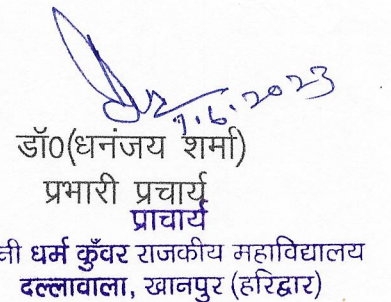 7.6.2023
डॉ0(धनंजय शर्मा)
प्रभारी प्रचार्य
प्राचार्य
नी धर्म कुँवर राजकीय महाविद्यालय
दल्लावाला, खानपुर (हरिद्वार)